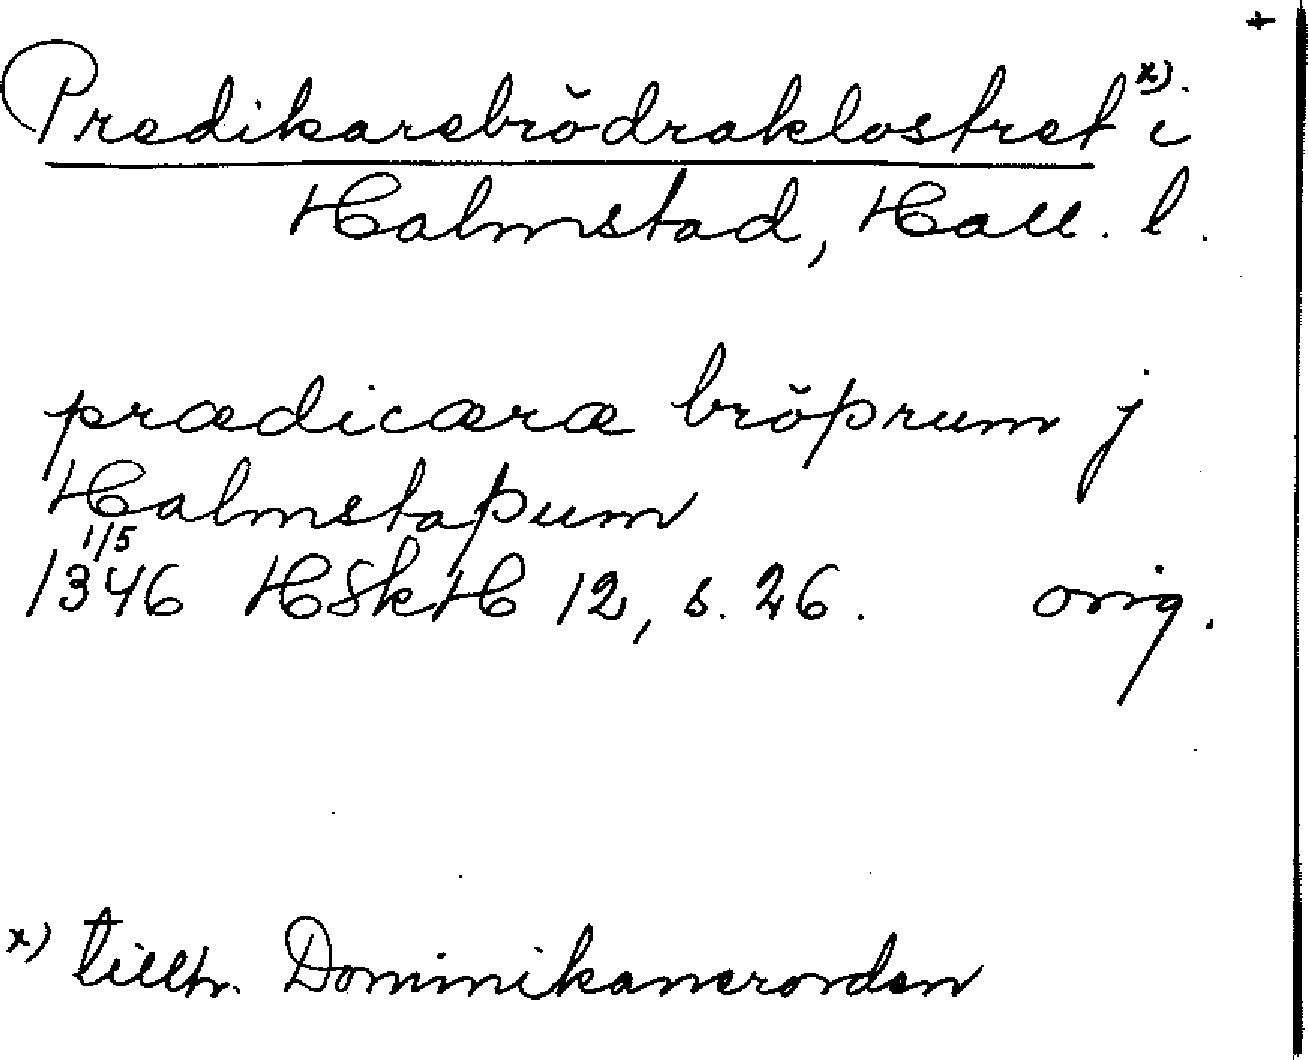 +
Predikarebrödraklostret x). i
Halmstad, Hall. l.
prædicæræ bröþrum j
Halmstaþum
1/5
1346 HSkH 12, s. 26. orig.
x) tillh. Dominikanerorden